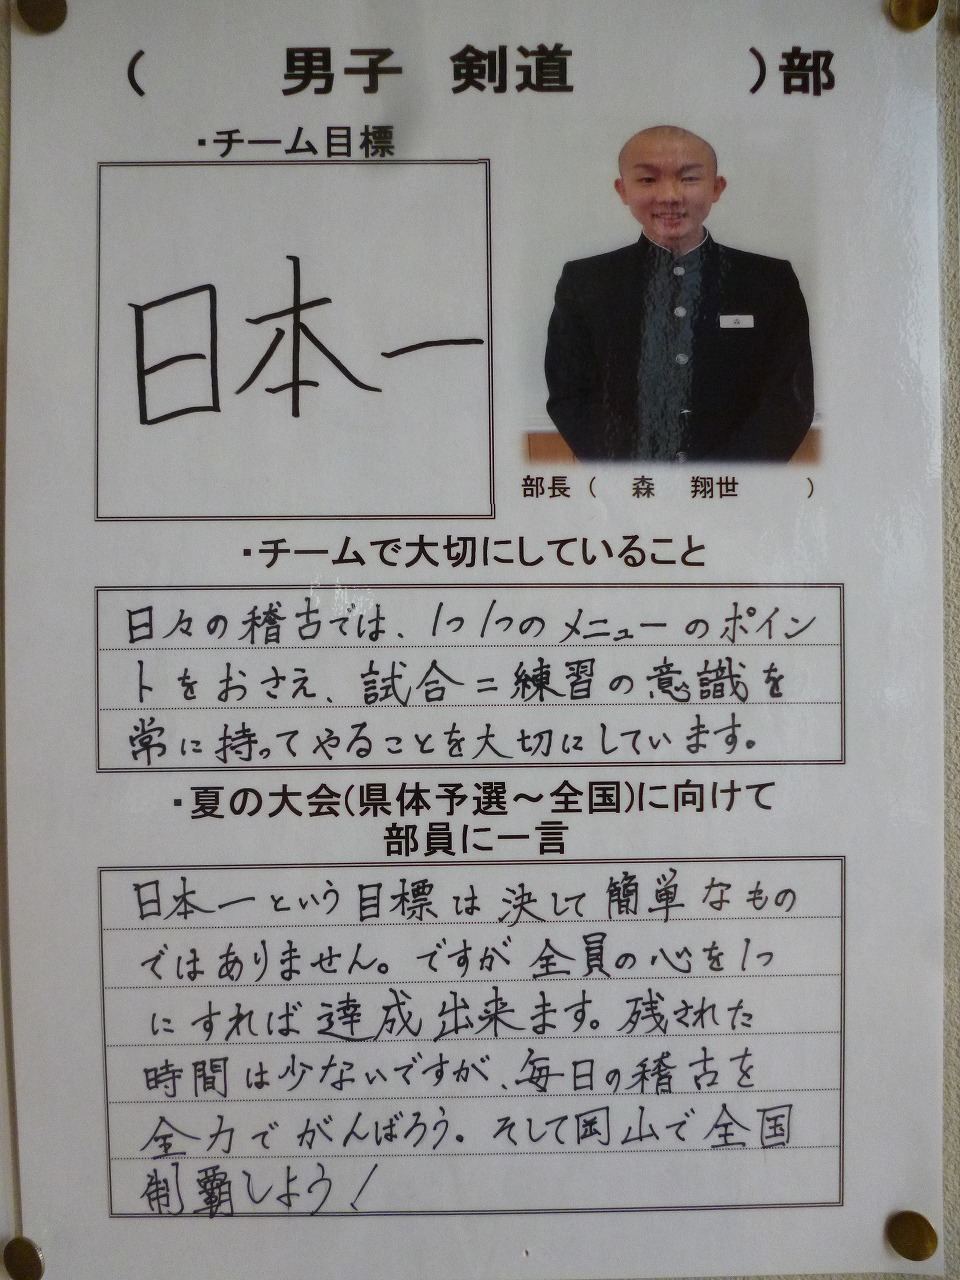 ( 男子 剣道 )部
・チーム目標
日本一
森
部長 ( 森 翔世 )
・チームで大切にしていること
日々の稽古では、1つ1つのメニューのポイン
トをおさえ、試合=練習の意識を
常に持ってやることを大切にしています。
・夏の大会(県体予選～全国)に向けて
部員に一言
日本一という目標は決して簡単なもの
ではありません。ですが全員の心を1つ
にすれば達成出来ます。残された
時間は少ないですが、毎日の稽古を
全力でがんばろう。そして岡山で全国
制覇しよう!